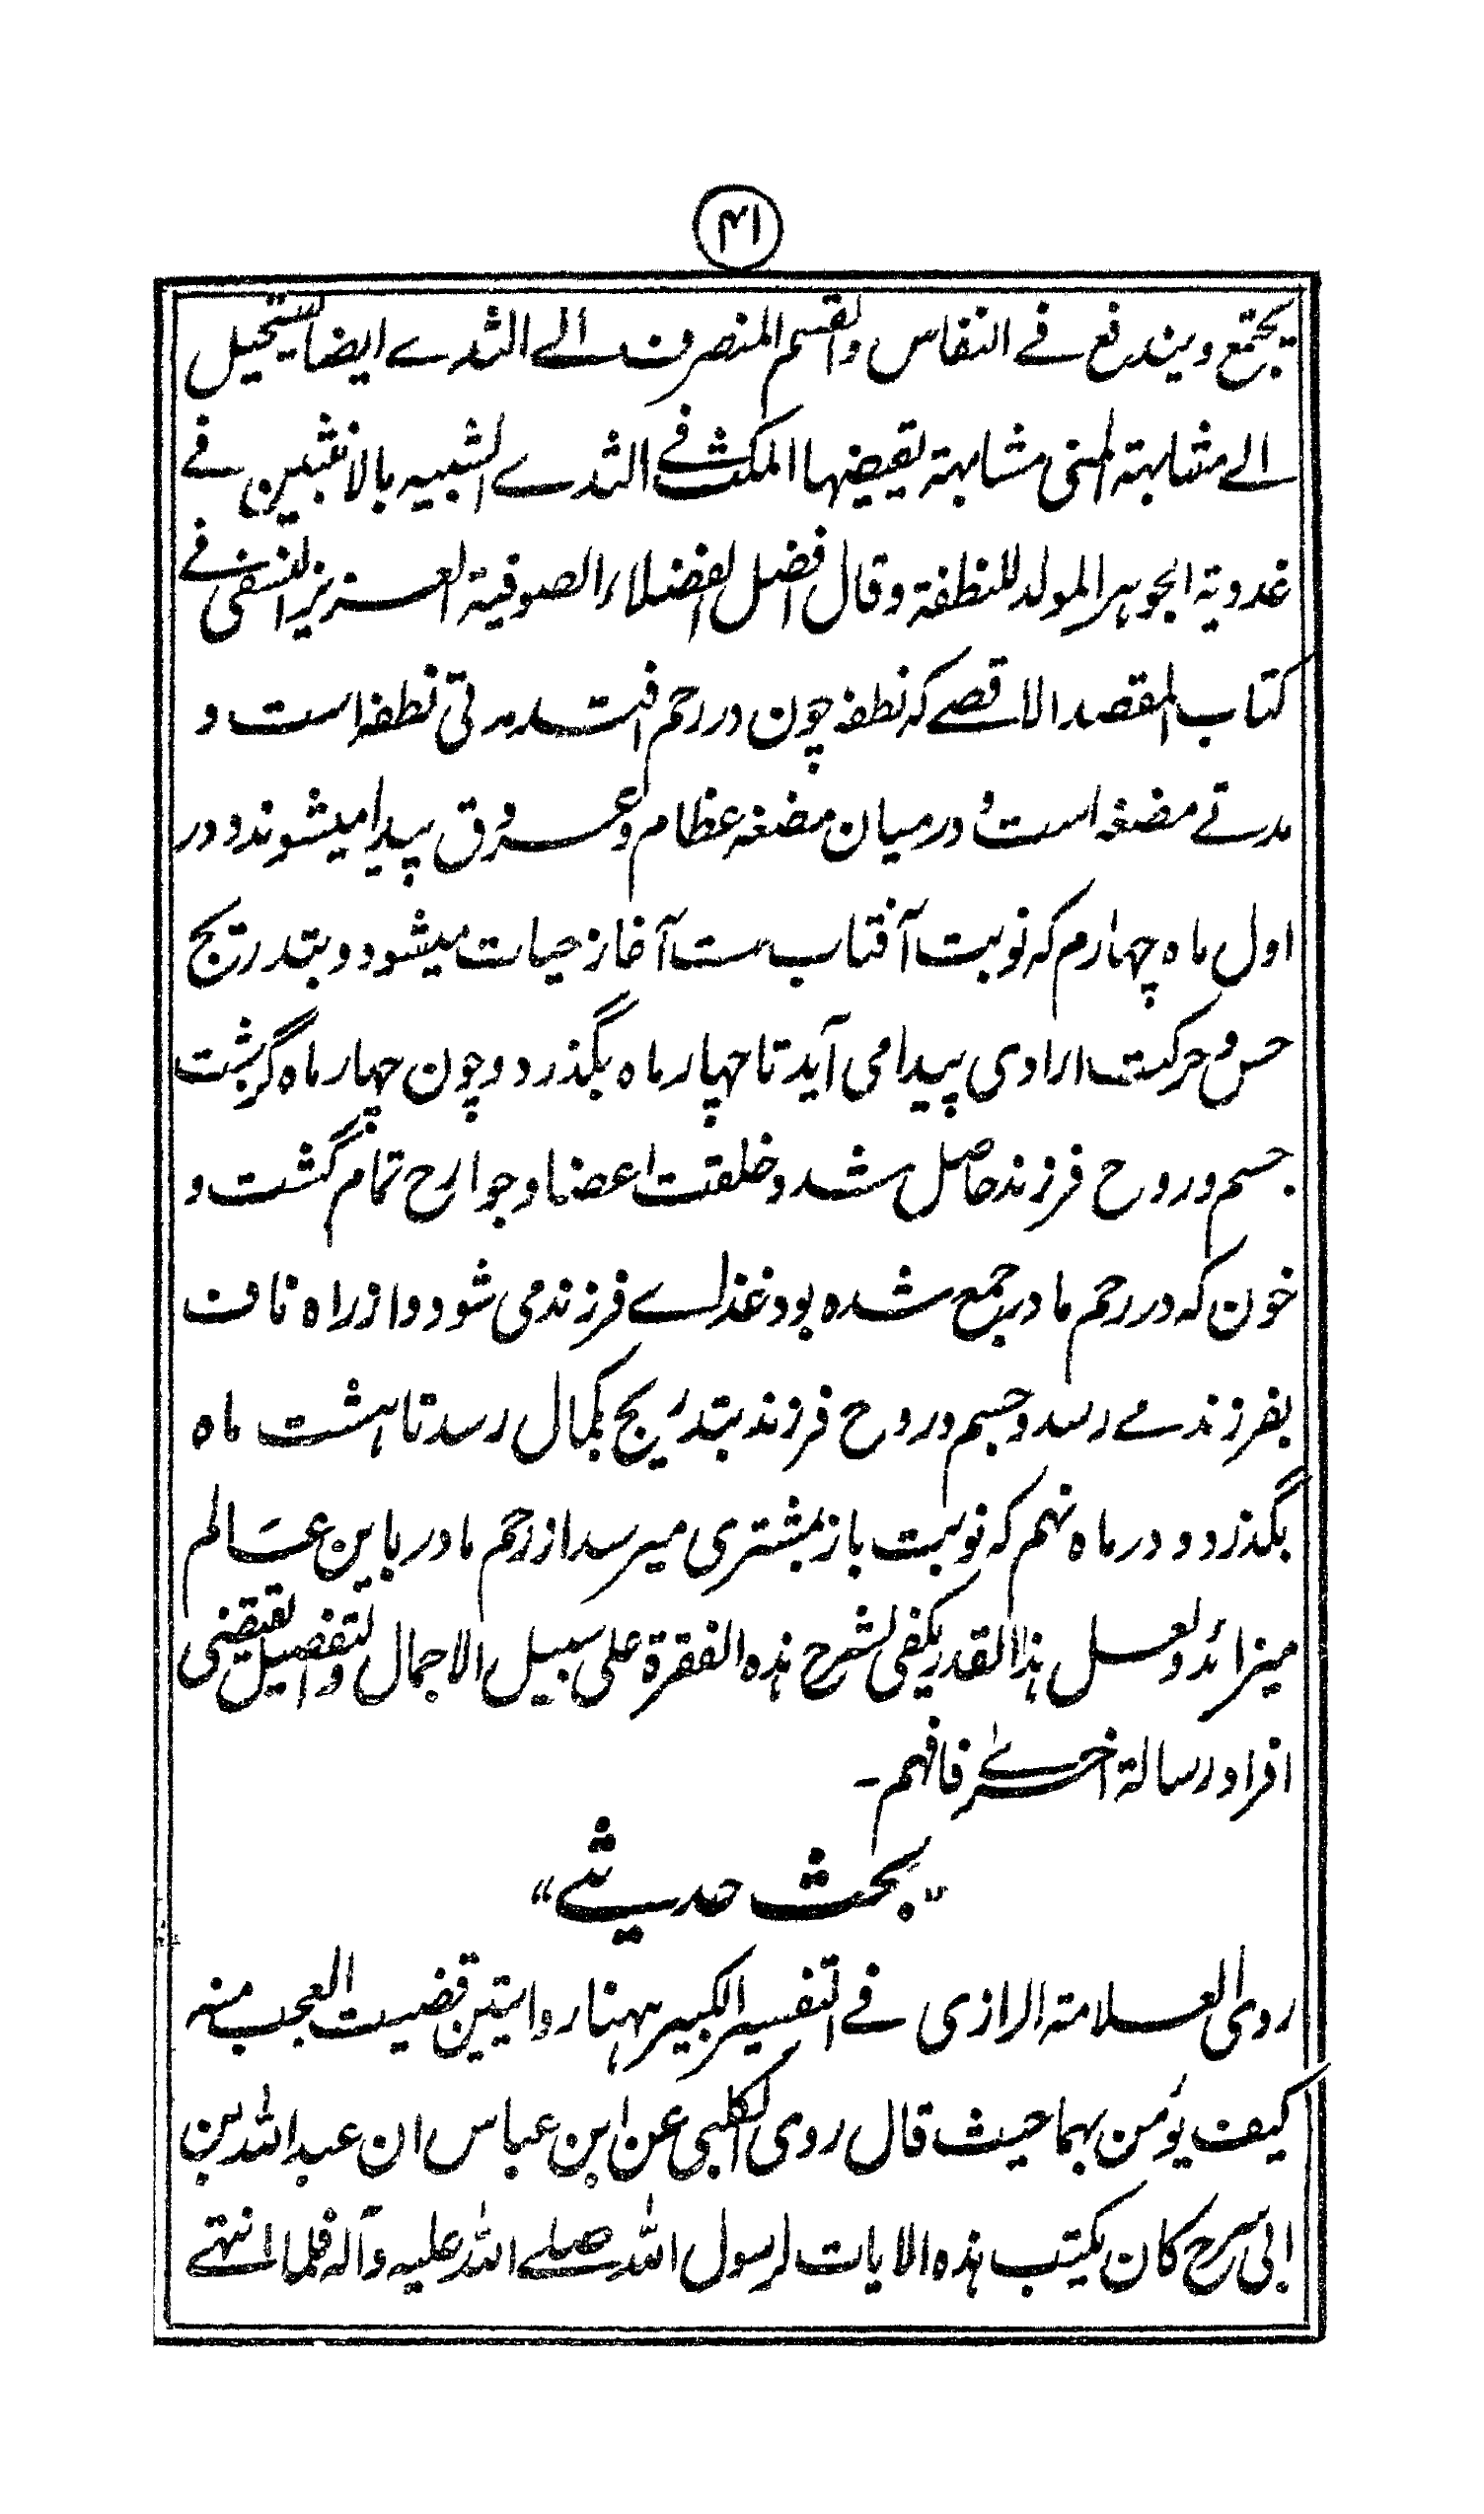 ۴۱
يجتمع ويندفع في النفاس والقسم المنصرف الے الثدے ايضا يستحيل
الے مشابهة المنى مشابهة يقيضها المكث فى الثدے الشبيه بالانثيين فے
غدوية الجوهر المولد للنطفة وقال افضل الفضلاء الصوفية العزيز النسفى فے
كتاب المقصد الاقصے که نطفه چون در رحم افتد مدتی نطفه است و
مدتے مضغه است و در میان مضغه عظام و عروق پیدا میشوند و در
اول ماه چهارم که نوبت آفتاب ست آغاز حیات میشود و بتدریج
حس و حرکت ارادی پیدا می آید تا چهار ماه بگذرد و چون چهار ماه گذشت
جسم و روح فرزند حاصل شد و خلقت اعضا و جوارح تمام گشت و
خون که در رحم مادر جمع شده بود غذاے فرزند می شود و از راه ناف
بفرزند مے رسد و جسم و روح فرزند بتدریج بکمال رسد تا هشت ماه
بگذرد و در ماه نهم که نوبت باز بمشتری میرسد از رحم مادر باین عالم
میزائد ولعل هذا القدر يكفى لشرح هذه الفقرة على سبيل الاجمال والتفصيل يقتضى
افراد رسالة اخرےٰ فافهم ۔
”بحث حدیثے“
روى العلامة الرازى فے التفسير الكبير ههنا روايتين قضيت العجب منه
كيف يؤمن بهما حيث قال روى الكلبى عن ابن عباس ان عبد الله بن
ابى سرح كان يكتب هذه الايات لرسول الله صلے الله عليه وآله فلما انتهے